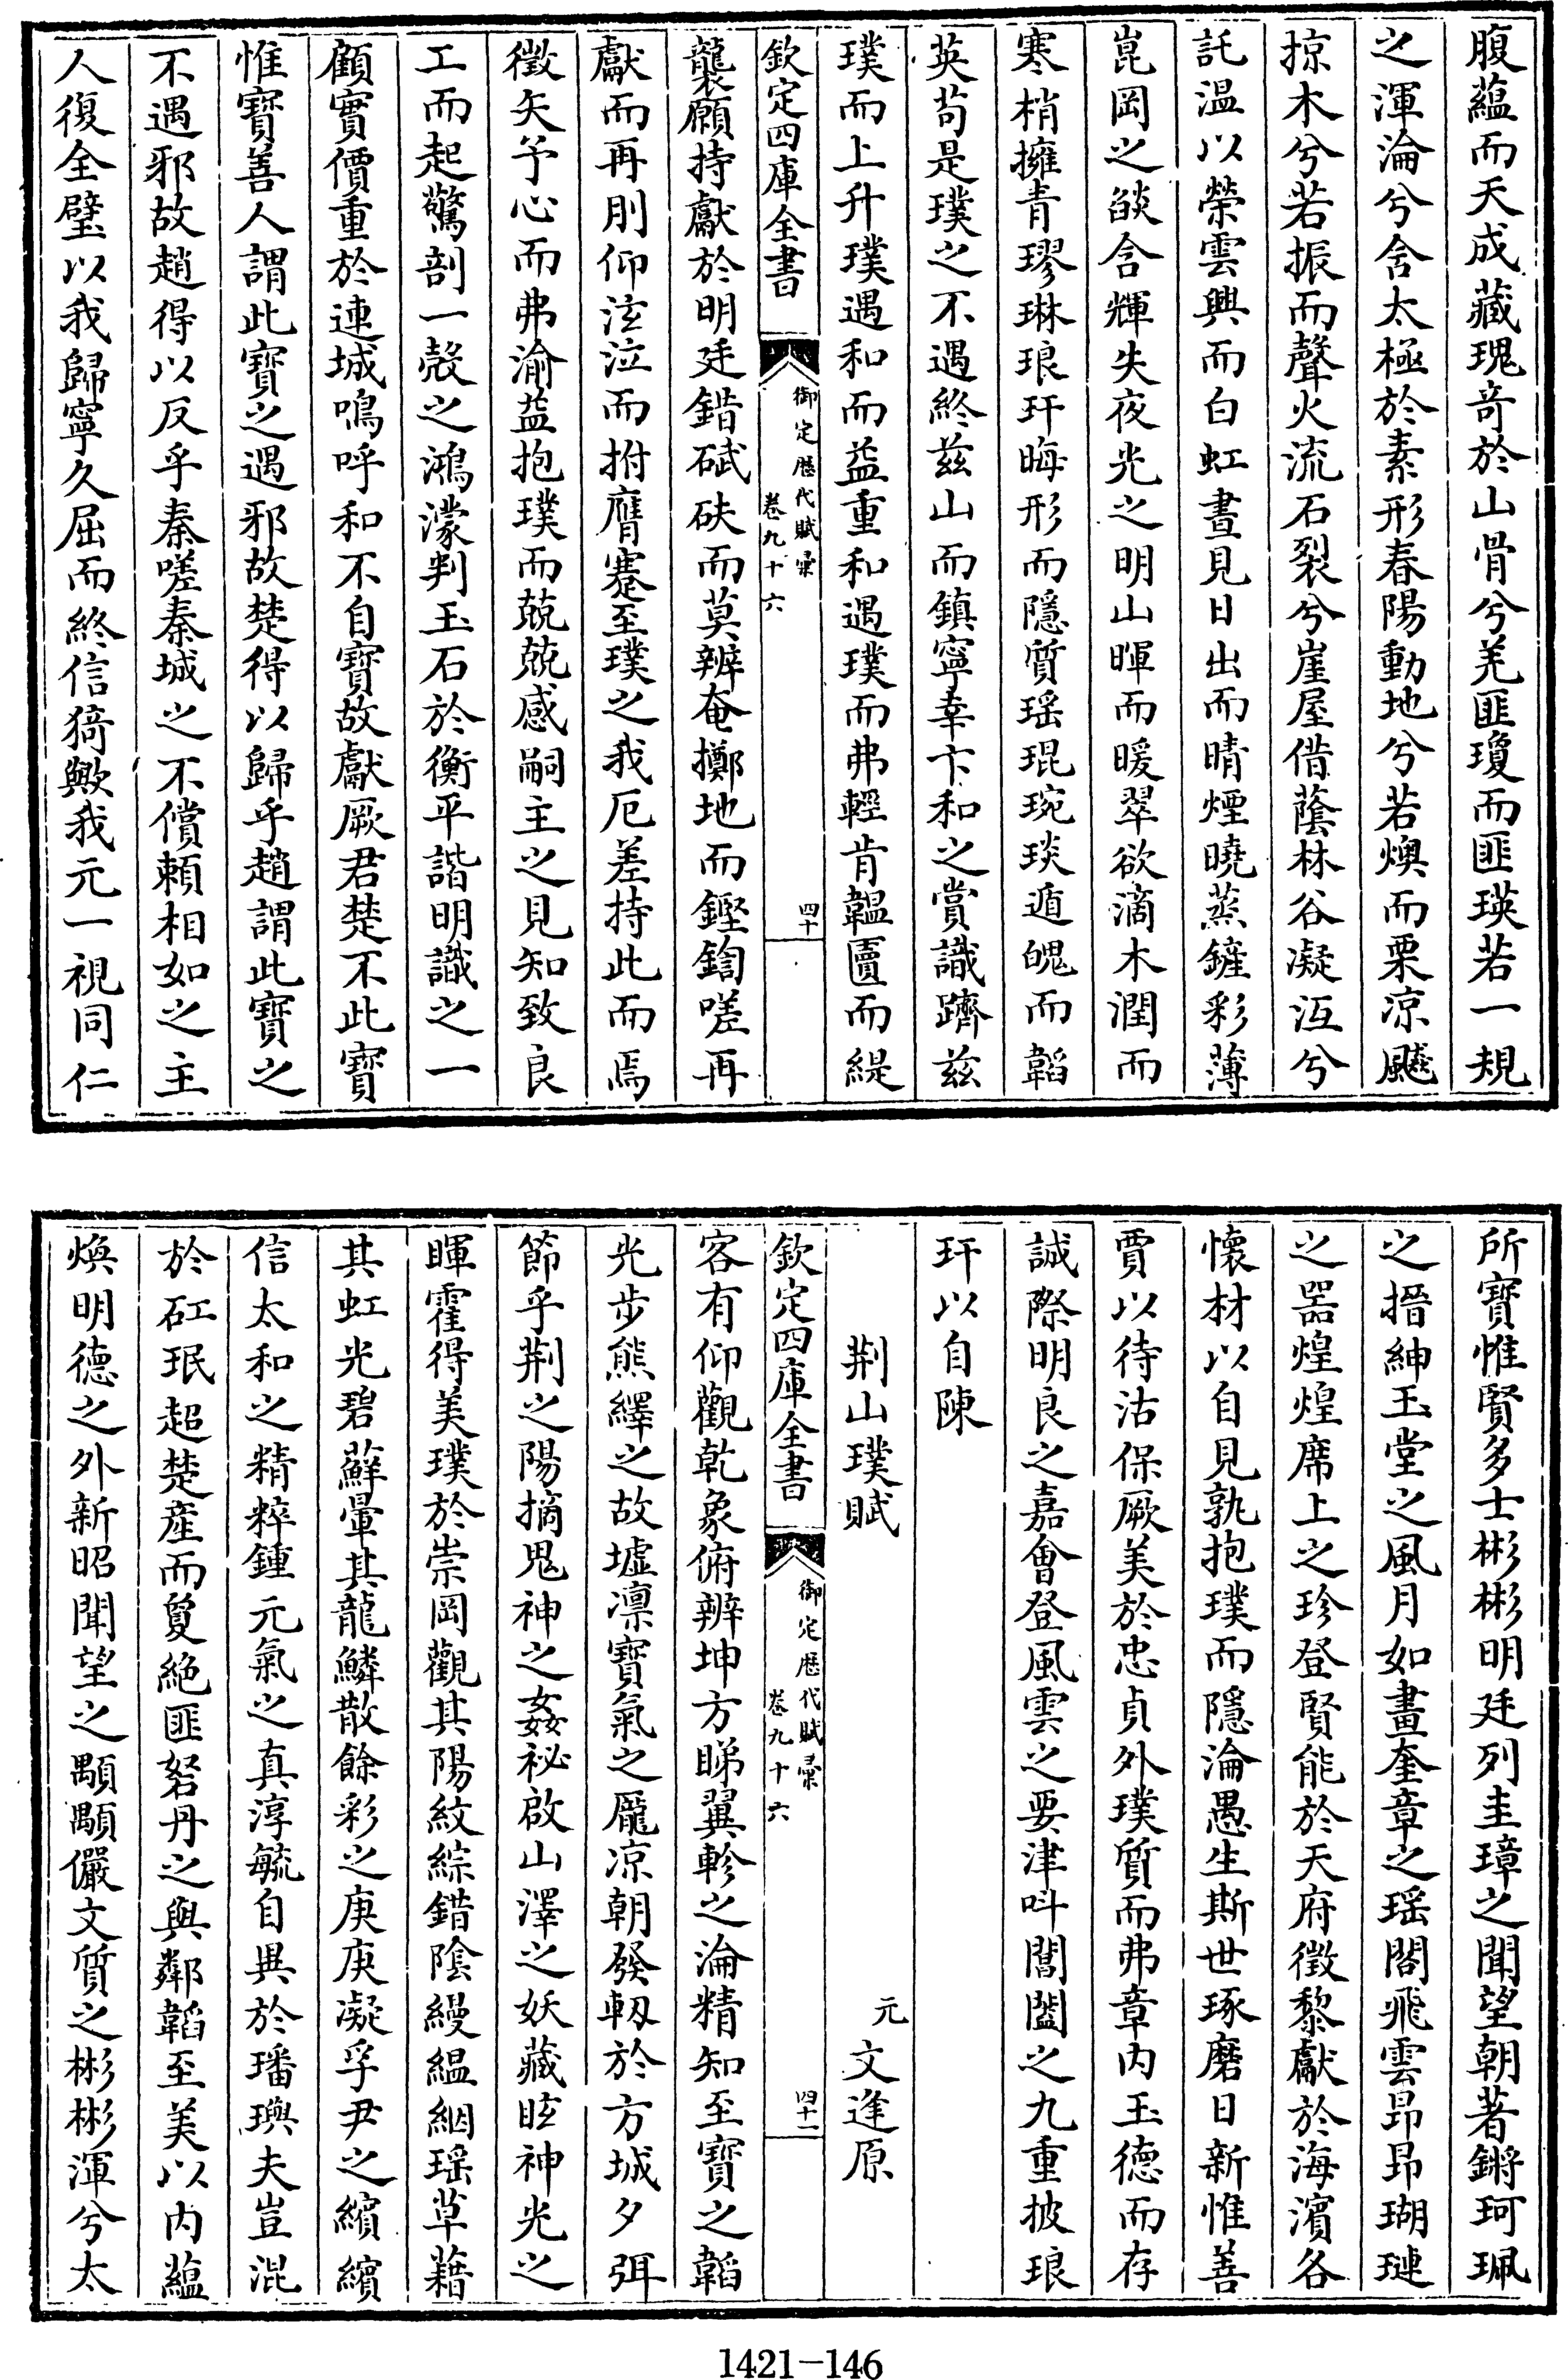 腹藴而天成藏瑰奇於山骨兮羌匪瓊而匪瑛若一規
之渾淪兮含太極於素形春陽動地兮若燠而栗凉飈
掠木兮若振而聲火流石裂兮崖屋借蔭林谷凝沍兮
託温以榮雲興而白虹晝見日出而晴煙曉蒸鏟彩薄
崑岡之燄含輝失夜光之明山暉而暖翠欲滴木潤而
寒梢擁青璆琳琅玕晦形而隱質瑶琨琬琰遁魄而韜
英茍是璞之不遇終兹山而鎮寧幸卞和之賞識躋兹
璞而上升璞遇和而益重和遇璞而弗輕肯韞匵而緹
欽定四庫全書
御定歴代賦彙
卷九十六
四十
襲願持獻於明廷錯碔砆而莫辨奄擲地而鏗鍧嗟再
獻而再刖仰泫泣而拊膺蹇至璞之我厄差持此而焉
徵矢予心而弗渝益抱璞而兢兢感嗣主之見知致良
工而起驚剖一殼之鴻濛判玉石於衡平諧明識之一
顧實價重於連城嗚呼和不自寳故獻厥君楚不此寳
惟寳善人謂此寳之遇邪故楚得以歸乎趙謂此寳之
不遇邪故趙得以反乎秦嗟秦城之不償頼相如之主
人復全璧以我歸寧久屈而終信猗歟我元一視同仁
所寳惟賢多士彬彬明廷列圭璋之聞望朝著鏘珂珮
之搢紳玉堂之風月如畫奎章之瑶閣飛雲昂昂瑚璉
之器煌煌席上之珍登賢能於天府徴黎獻於海濱各
懷材以自見孰抱璞而隱淪愚生斯世琢磨日新惟善
賈以待沽保厥美於忠貞外璞質而弗章内玉德而存
誠際明良之嘉會登風雲之要津呌閶闔之九重披琅
玕以自陳
荆山璞賦
元
文逢原
欽定四庫全書
御定歴代賦彙
卷九十六
四十一
客有仰觀乾象俯辨坤方睇翼軫之淪精知至寳之韜
光步熊繹之故墟凛寳氣之厖凉朝發軔於方城夕弭
節乎荆之陽摘鬼神之姦祕啟山澤之妖藏眩神光之
暉霍得美璞於崇岡觀其陽紋綜錯陰縵緼絪瑶草藉
其虹光碧蘚暈其龍鱗散餘彩之庚庚凝孚尹之繽繽
信太和之精粹鍾元氣之真淳毓自異於璠璵夫豈混
於矼珉超楚産而敻絶匪砮丹之與鄰韜至美以内藴
煥明德之外新昭聞望之顒顒儼文質之彬彬渾兮太
1421-146